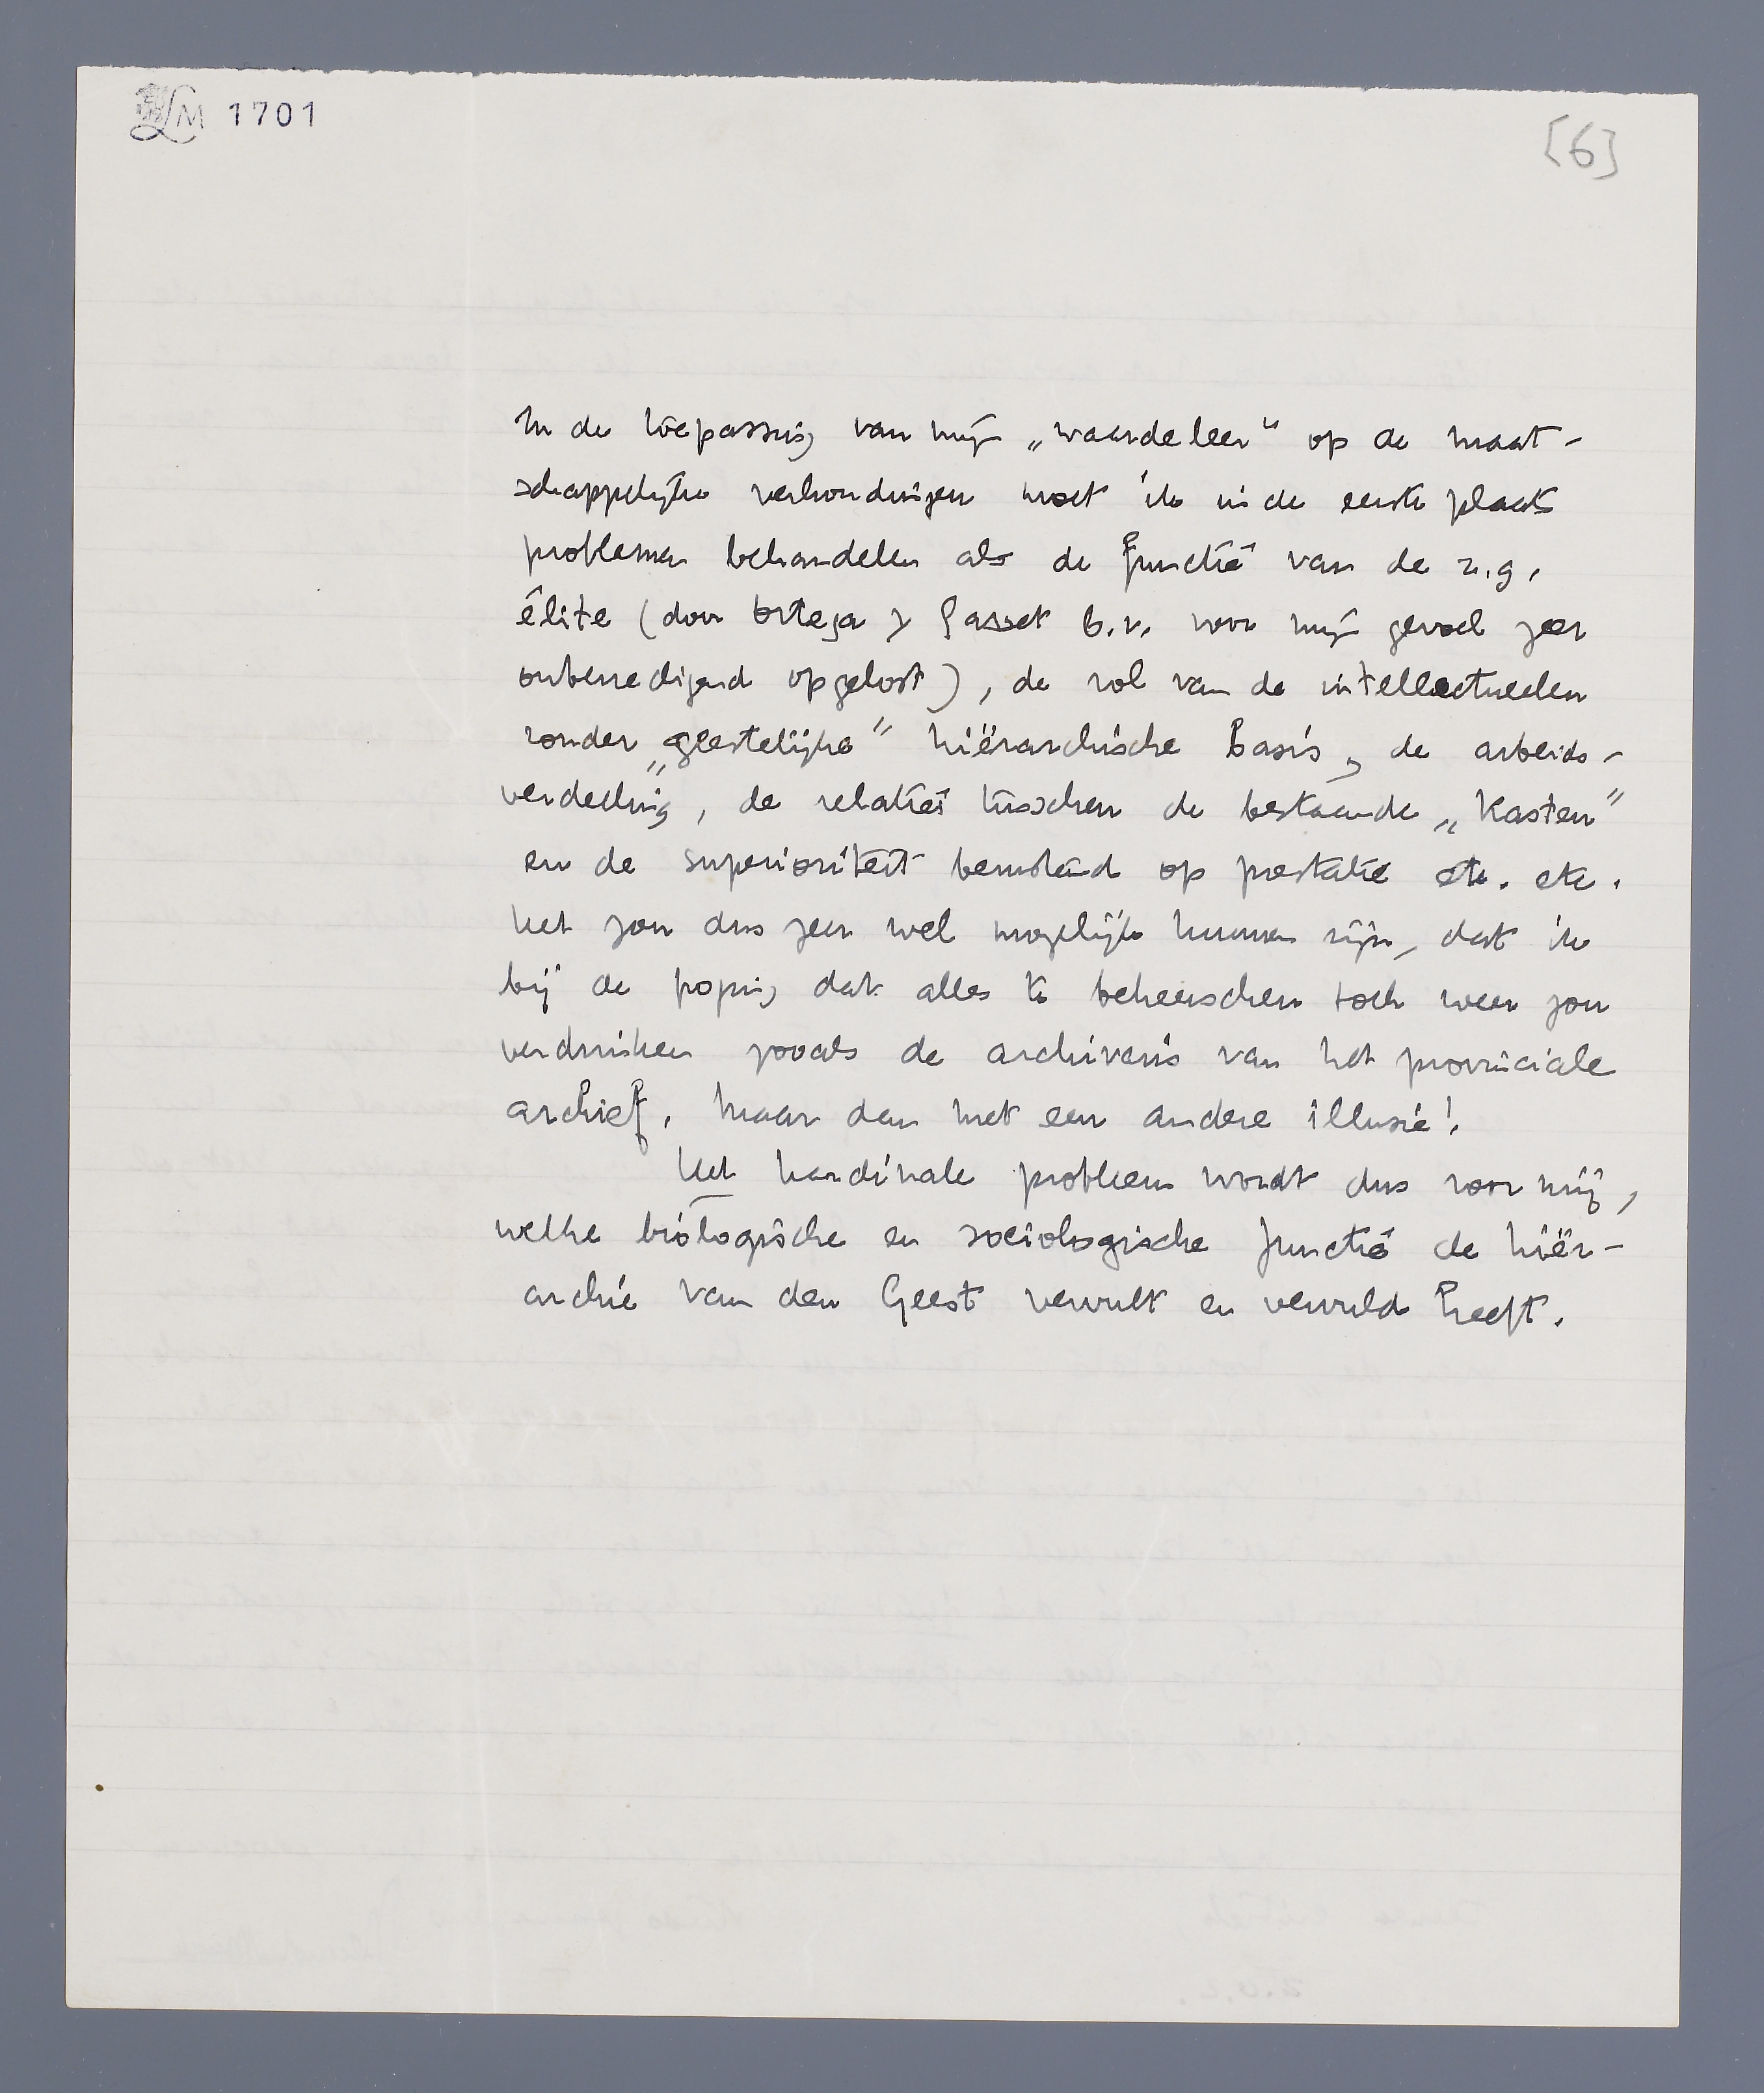 LM 1701
[6]
In de toepassing van mijn „waardeleer" op de maat-
schappelijke verhoudingen moet ik in de eerste plaats
problemen behandelen als de functie van de z.g.
élite (door Ortega y Gasset b.v. voor mijn gevoel zeer
onbevredigend opgelost), de rol van de intellectueelen
zonder „geestelijke" hiërarchische basis, de arbeids-
verdeeling, de relaties tusschen de bestaande „kasten"
en de superioriteit berustend op prestatie etc. etc.
Het zou dus zeer wel mogelijk kunnen zijn, dat ik
bij de poging dat alles te beheerschen toch weer zou
verdrinken zooals de archivaris van het provinciale
archief, maar dan met een andere illusie!
Het kardinale probleem wordt dus voor mij,
welke biologische en sociologische functie de hiër-
archie van den Geest vervult en vervuld heeft.